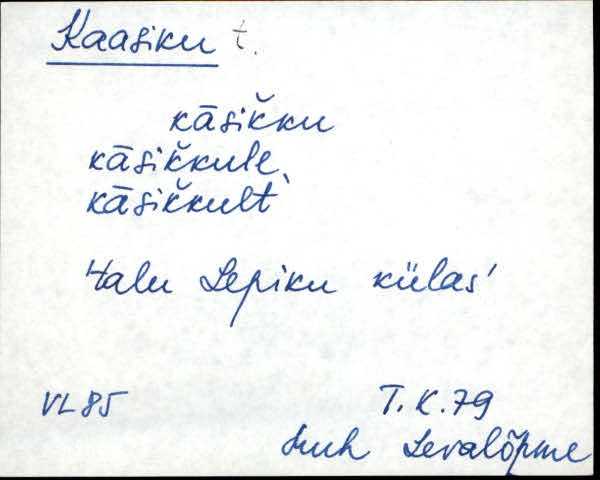 Kaasiku t.
kāsik̆ku
kāsik̆kule
kāsik̆kult
Talu Lepiku külas
VL85
T.K.79
Levalõpme